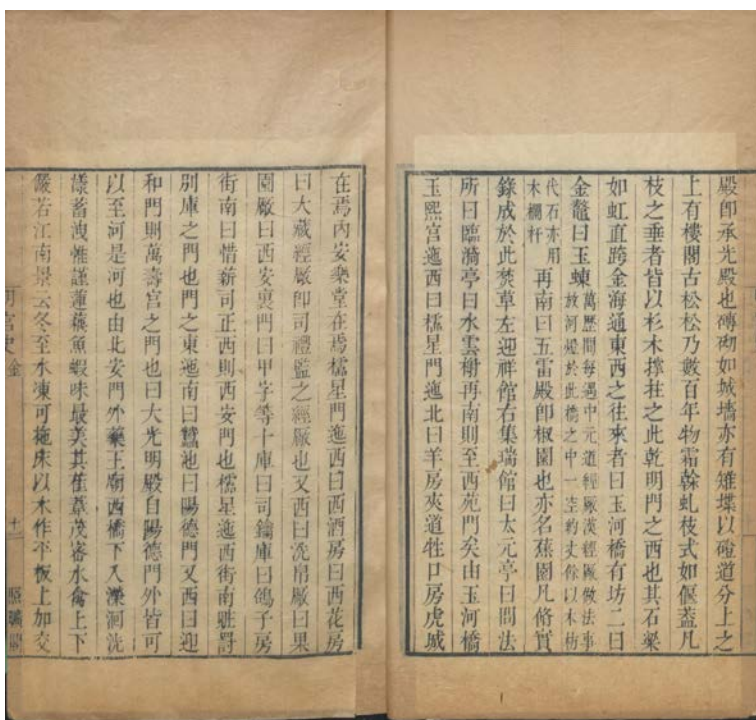 殿卽承光殿也磚砌如城墻亦有雉堞以磴道分上之
上有樓閣古松松乃數百年物霜幹虬枝式如偃蓋凡
枝之垂者皆以杉木撑拄之此乾明門之西也其石梁
如虹直跨金海通東西之往來者曰玉河橋有坊二曰
金鼇曰玉蝀萬歷間每遇中元道經厰漢經厰做法事
放河燈於此橋之中一空約丈餘以木枋
代石亦用
木欄杆再南曰五雷殿卽椒園也亦名蕉園凡修實
錄成於此焚草左迎祥館右集瑞館曰太元亭曰問法
所曰臨漪亭曰水雲榭再南則至西苑門矣由玉河橋
玉熙宫迤西曰櫺星門迤北曰羊房夾道牲口房虎城
在焉內安樂堂在焉櫺星門迤西曰西酒房曰西花房
曰大藏經厰卽司禮監之經厰也又西曰洗帛厰曰果
園厰曰西安裏門曰甲字等十庫曰司鑰庫曰鴿子房
街南曰惜薪司正西則西安門也櫺星迤西街南贓罸
別庫之門也門之東迤南曰蠶池曰陽德門又西曰迎
和門則萬壽宮之門也曰大光明殿自陽德門外皆可
以至河是河也由北安門外藥王廟西橋下入瀠洄洸
漾蓄洩惟謹蓮藕魚蝦味最美其萑葦茂密水禽上下
儼若江南景云冬至水凍可拖床以木作平板上加交
宮史
金
十一
照曠閣